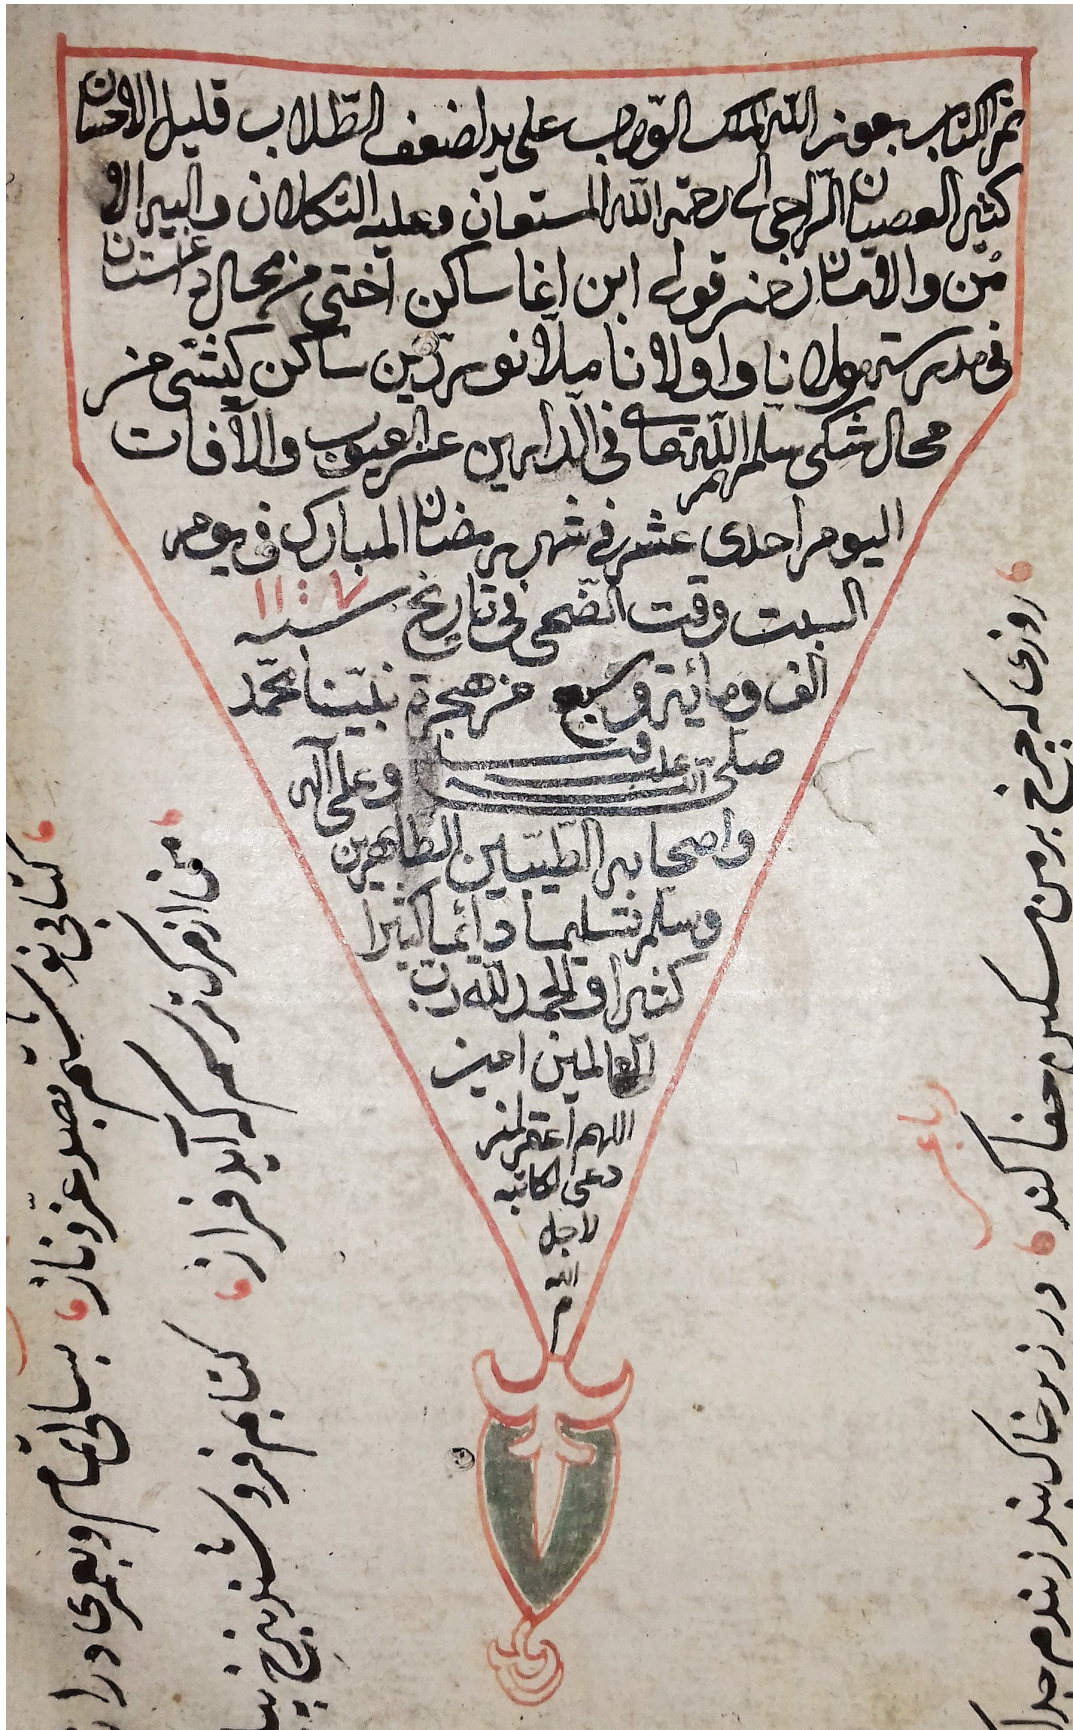 تم الكتاب بعون الله الملك الوهاب على يد اضعف الطّلاب قليل الاحسان
كثير العصيان الرّاجى الى رحمة الله المستعان وعليه التكلان واليه الا
من والامان رخنر قولى ابن اغا ساكن اختى من محال داغستان
فى مدرسته مولانا واولانا ملّا نورزّين ساكن كيشى من
محال شكى سلمهم الله تعالى فى الدّارين عن العيوب والآفات
اليوم احدى عشر فى شهر رمضان المبارك فى يوم
السبت وقت الضّحى فى تاريخ سنه ١١٠٧
الف ومائية وسبع من هجرة نبيّنا محمّد
صلى الله عليه وسلم وعلى آله
واصحابه الطّيّبين الطّاهرين
وسلم تسليما دائما كثيرا
كثيرا والحمد لله ربّ
العالمين امين
اللهم اغفر لمن
دعى لكاتبه
لاجل
الله
م
روزى كه چرخ بر من مسكين جفا كند
در زير خاك بند ز بندم جدا
رباعى
من از مرگ ترسم كه آيد فراز
كتابم فروشند بنرخ پياز
كتابى نوشتم بصد عزّ وناز
بسالى تمام وبعمرى دراز